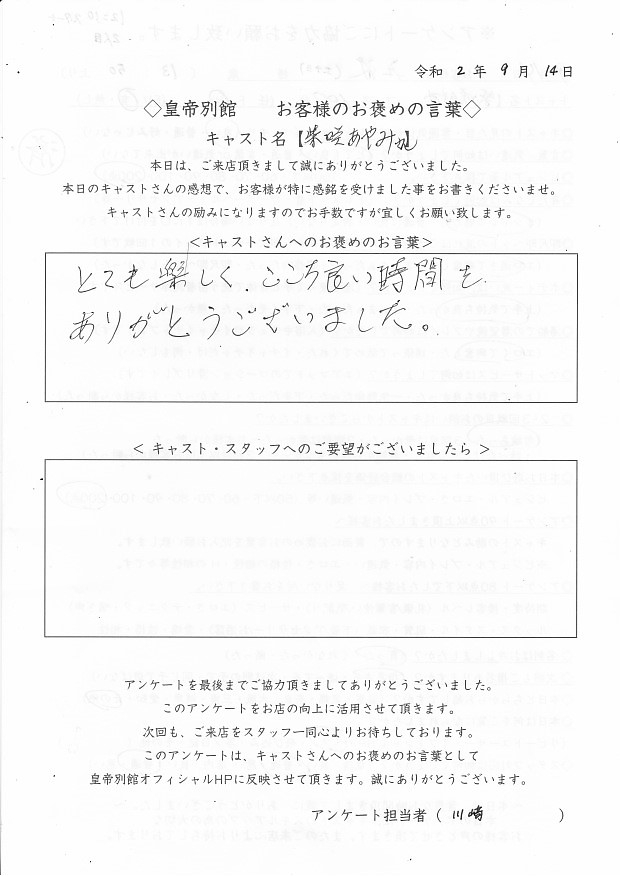 令和 2 年 9 月 14 日
◇皇帝別館　お客様のお褒めの言葉◇
キャスト名【柴咲あやみ
本日は、ご来店頂きまして誠にありがとうございました。
本日のキャストさんの感想で、お客様が特に感銘を受けました事をお書きくださいませ。
キャストさんの励みになりますのでお手数ですが宜しくお願い致します。
<キャストさんへのお褒めのお言葉>
とても楽しく、ここち良い時間を
ありがとうございました。
< キャスト・スタッフへのご要望がございましたら >
アンケートを最後までご協力頂きましてありがとうございました。
このアンケートをお店の向上に活用させて頂きます。
次回も、ご来店をスタッフ一同心よりお待ちしております。
このアンケートは、キャストさんへのお褒めのお言葉として
皇帝別館オフィシャルHPに反映させて頂きます。誠にありがとうございます。
アンケート担当者（ 川崎 ）